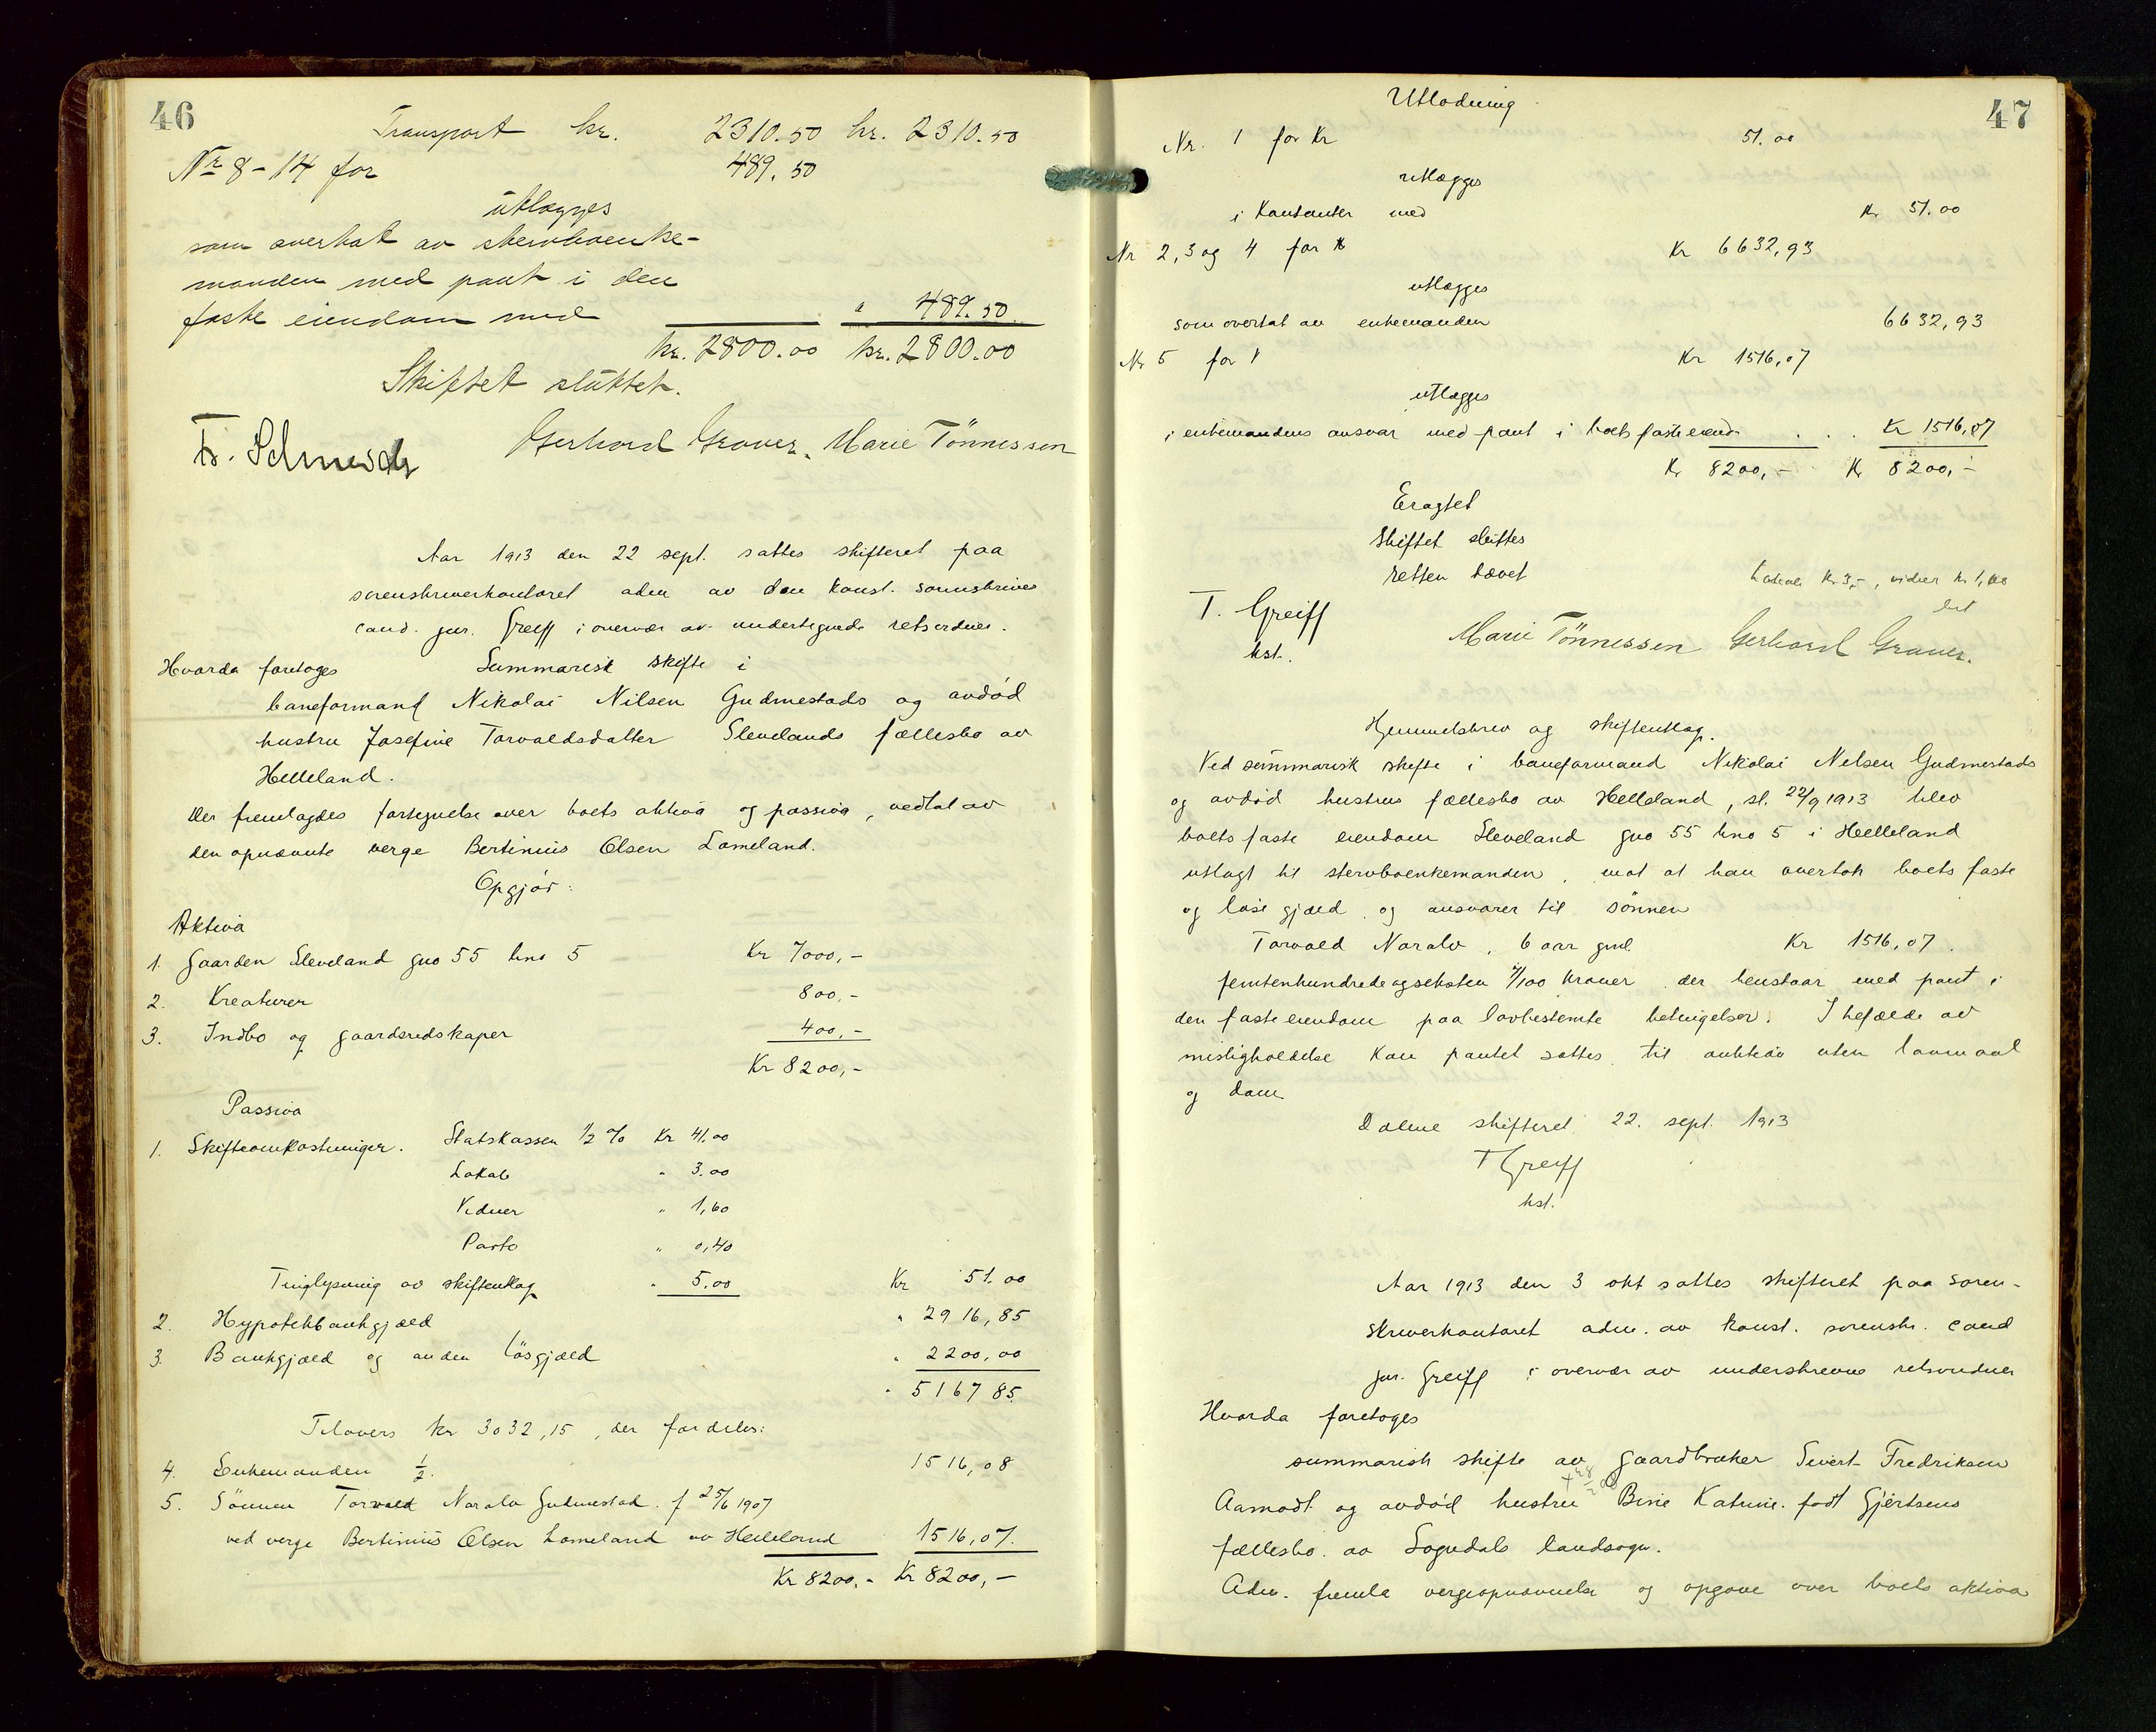 46
Transport kr. 2310.50 kr. 2310.50
Nr 8 - 14 for 489.50
utlægges
som overtat av stervboenke-
manden med pant i den
faste eiendom med " 489.50
kr. 2800.00 kr. 2800.00
Skiftet sluttet.
Gerhard Graver. Marie Tönnessen
Aar 1913 den 22 sept. sattes skifteret paa
sorenskriverkontoret adm av den konst. sorenskriver
cand. jur. Greiff i overvær av undertegnede retsvidner.
Hvorda foretoges Summarisk skifte i
baneformand Nikolai Nilsen Gudmestads og avdød
hustru Josefine Torvaldsdatter Slevelands fællesbo av
Helleland.
Der fremlagdes fortegnelse over boets aktiva og passiva, vedtat av
den opnævnte verge Bertinius Olsen Lomeland.
Opgjør:
Aktiva
1. Gaarden Sleveland gno 55 bno 5 Kr 7000,-
2. Kreaturer 800,-
3. Indbo og gaardsredskaper 400,-
Kr 8200,-
Passiva
1. Skifteomkostninger. Statskassen 1/2 % Kr 41.00
Lokale " 3.00
Vidner " 1,60
Porto " 0,40
Tinglysning av skifteutlæg " 5.00 Kr 51.00
2. Hypotekbankgjæld " 2916,85
3. Bankgjæld og anden løsgjæld " 2200,00
" 5167 85.
Tilovers kr 3032,15, der fordeles:
4. Enkemanden 1/2. 1516,08
5. Sönnen Torvald Noralv Gudmestad. f 25/6 1907
ved verge Bertinius Olsen Lomeland av Helleland 1516,07.
Kr 8200.- Kr 8200,-
47
Utlodning
Nr. 1 for Kr 51.00
utlægges
i Kontanter med Kr 51.00
Nr 2, 3 og 4 for Kr 6632,93
utlægges
som overtat av enkemanden 6632,93
Nr 5 for Kr 1516,07
utlægges
i enkemandens ansvar med pant i boets faste eiend. . . . Kr 1516,07
Kr 8200,- Kr 8200,-
Eragtet
Skiftet sluttes
Retten hævet
Lokale Kr 3,-, vidner kr 1,60
bet
T. Greiff
kst.
Marie Tönnessen Gerhard Graver.
Hjemmelsbrev og skifteutlæg.
Ved summarisk skifte i baneformand Nikolai Nilsen Gudmestads
og avdød hustrus fællesbo av Helleland, sl. 22/9 1913 blev
boets faste eiendom Sleveland gno 55 bno 5 i Helleland
utlagt til stervboenkemanden, mot at han overtok boets faste
og løse gjæld og ansvarer til sönnen
Torvald Noralv, 6 aar gml. Kr 1516,07.
femtenhundredeogseksten 7/100 Kroner der henstaar med pant i
den faste eiendom paa lovbestemte betingelser. I tilfælde av
misligholdelse kan pantet sættes til auktion uten lovmaal
og dom
Dalene skifteret 22. sept. 1913
T Greiff
kst.
Aar 1913 den 3 okt sattes skifteret paa soren-
skriverkontoret adm. av konst. sorenskr. cand
jur. Greiff i overvær av underskrevne retsvidner
Hvorda foretoges
summarisk skifte av gaardbruker Sivert Fredriksen
Aamodt og avdød hustru Bine Katrine født Gjertsens
fællesbo. av Sogndals landsogn.
Adm. fremla vergeopnævnelse og opgave over boets aktiva